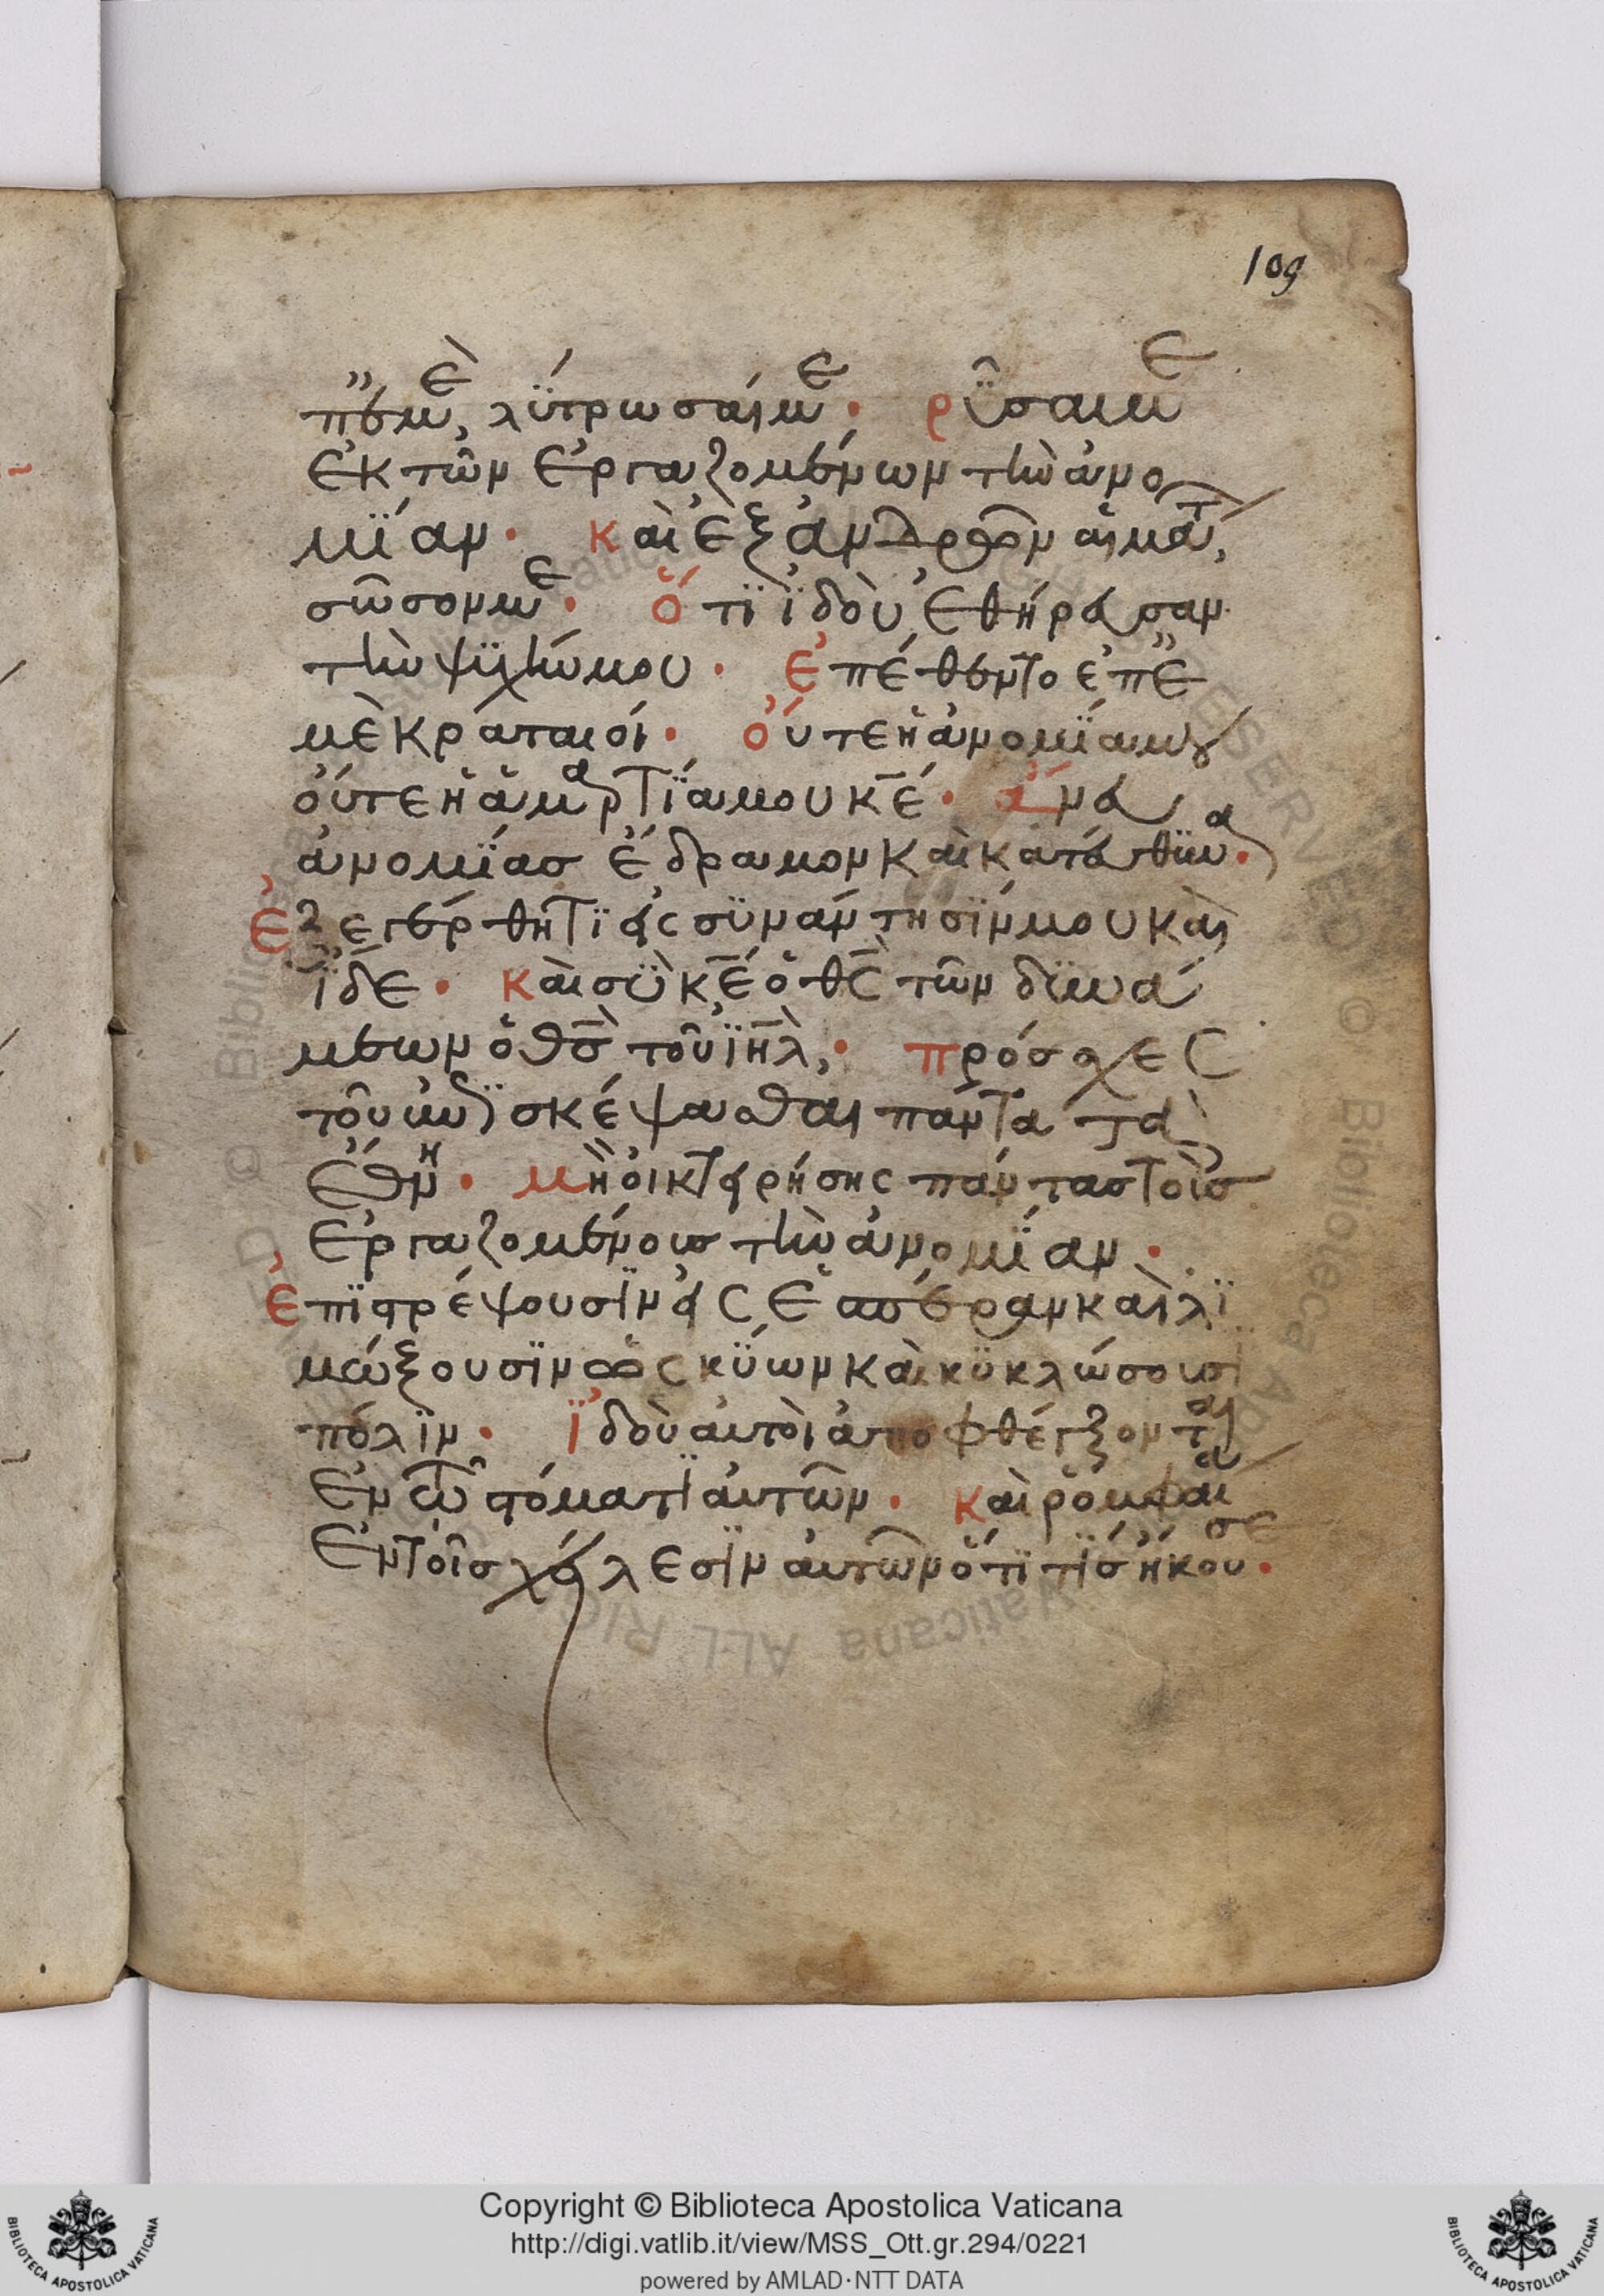 109
π ἐμὲ, λύτρωσαί με· ῥῦσαί με
ἐκ τῶν ἐργαζομένων τὴν ἀνο
μίαν· καὶ ἐξ ἀνδρῶν αἱμάτ,
σῶσόν με· ὅτϊ ϊδοὺ ἐθήρασαν
τὴν ψϋχήν μου· ἐπέθεντο ἐπ ἐ
μὲ κραταιοί· οὔτε ἡ ἀνομΐα μου
οὔτε ἡ ἁμαρτΐα μου κε· ἄνευ
ἀνομΐασ ἔδραμον καὶ κατεύθϋνα·
ἐξεγέρθητϊ εἰς σϋνάντησΐν μου καὶ
ΐδε· καὶ σὺ κε ὁ θς τῶν δϋνά
μεων ὁ θσ τοῦ ιηλ,· πρόσχες
τοῦ ἐπισκέψασθαι πάντα τὰ
ἔθνη· μὴ οἰκτειρήσης πάντας τοὺς
ἐργαζομένους τὴν ἀνομΐαν·
ἐπϊστρέψουσϊν εἰς ἑσπέραν καὶ λϊ
μώξουσϊν ὡς κϋων καὶ κϋκλώσουσϊ
πόλϊν· ϊδοὺ αὐτοὶ ἀποφθέγξονται
ἐν τῶ στόματϊ αὐτῶν· καὶ ῥομφαία
ἐν τοῖσ χείλεσϊν αὐτῶν ὅτϊ τΐσ ἤκουσε·
Copyright © Biblioteca Apostolica Vaticana
http://digi.vatlib.it/view/MSS_Ott.gr.294/0221
powered by AMLAD·NTT DATA
BIBLIOTECA APOSTOLICA VATICANA
BIBLIOTECA APOSTOLICA VATICANA